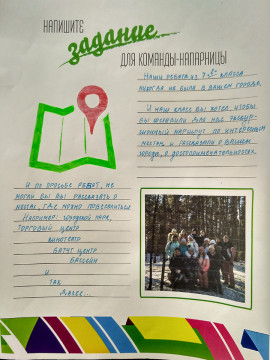 НАПИШИТЕ
задание...
ДЛЯ КОМАНДЫ-НАПАРНИЦЫ
Наши ребята из 7 "В" класса
никогда не были в вашем городе.
И наш класс бы хотел, чтобы
бы составили для нас экскур-
сионный маршрут по интересным
местам и рассказали о вашем
городе, о достопримечательностях.
И по просьбе ребят, не
могли бы вы рассказать о
местах, где можно поразвлечься
Например: городской парк,
торговый центр
кинотеатр
батут центр
бассейн
и
так
далее...